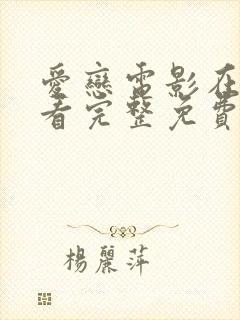 愛戀電影在
看完整免費
楊麗萍